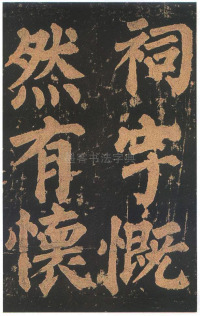 祠宇慨
然有懷
书法字典